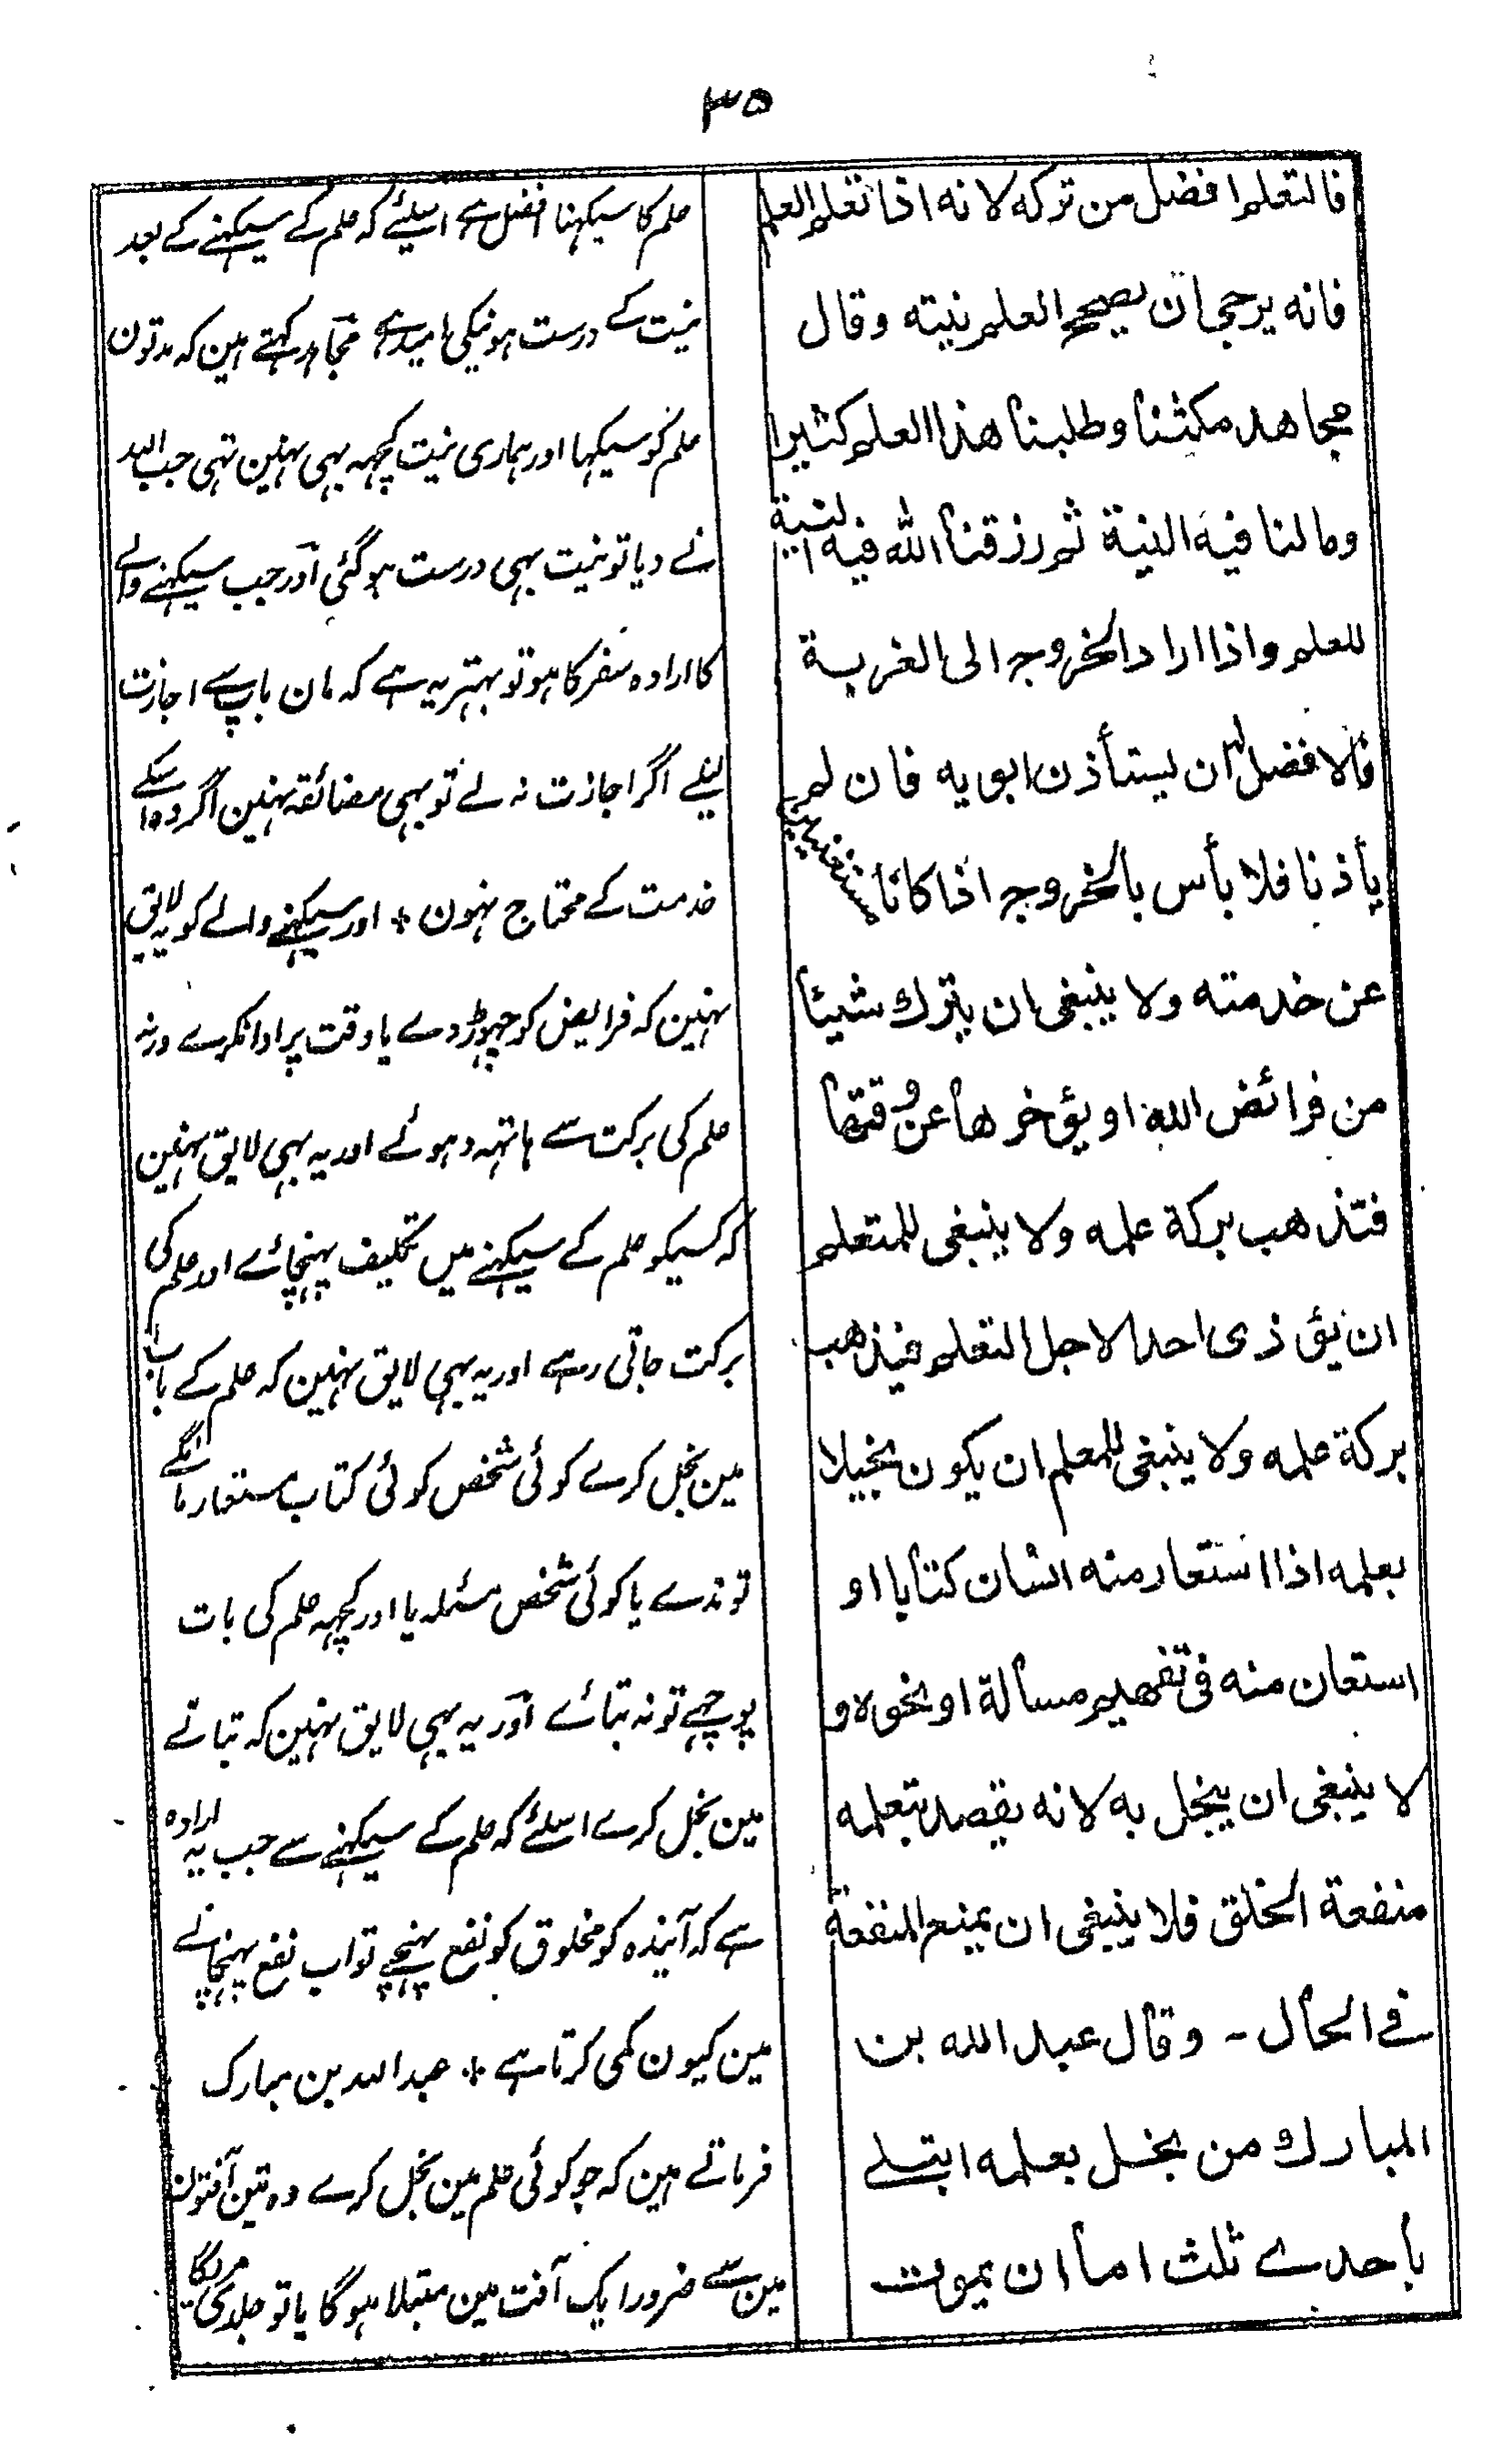 ٣٥
فالتعلم افضل من تركه لانه اذا تعلم العلم
فانه يرجى ان يصحح العلم نيته وقال
مجاهد مكثنا وطلبنا هذا العلم كثيرا
وما لنا فيه النية ثم رزقنا الله فيه النية
للعلم واذا اراد الخروج الى الغربة
فالافضل له ان يستأذن ابويه فان لم
يأذنا فلا بأس بالخروج اذا كانا مستغنيين
عن خدمته ولا ينبغى ان يترك شيئا
من فرائض الله او يؤخرها عن وقتها
فتذهب بركة علمه ولا ينبغى للمتعلم
ان يؤذى احدا لاجل التعلم فيذهب
بركة علمه ولا ينبغى للمعلم ان يكون بخيلا
بعلمه اذا استعار منه انسان كتابا او
استعان منه فى تفهيم مسألة او نحوه و
لا ينبغى ان يبخل به لانه يقصد بتعلمه
منفعة الخلق فلا ينبغى ان يمنع المنفعة
فے الحال - وقال عبد الله بن
المبارك من بخل بعلمه ابتلے
باحدے ثلث اما ان يموت
علم کا سیکہنا افضل ہے اسلیئے کہ علم کے سیکہنے کے بعد
نیت کے درست ہونیکی امید ہے مجاہد کہتے ہین کہ مدتون
علم کو سیکہا اور ہماری نیت کچہہ بہی نہین تہی جب اللہ
نے دیا تو نیت بہی درست ہو گئی اور جب سیکہنے والے
کا ارادہ سفر کا ہو تو بہتر یہ ہے کہ مان باپ سے اجازت
لیلے اگر اجازت نہ لے تو بہی مضائقہ نہین اگر وہ اسکے
خدمت کے محتاج نہون * اور سیکہنے والے کو یہ لایق
نہین کہ فرایض کو چہوڑ دے یا وقت پر ادا نکرے ورنہ
علم کی برکت سے ہاتہہ دہوئے اور یہ بہی لایق نہین
کہ کسیکو علم کے سیکہنے میں تکلیف پہنچائے اور علم کی
برکت جاتی رہے اور یہ بہی لایق نہین کہ علم کے باب
مین بخل کرے کوئی شخص کوئی کتاب مستعار مانگے
تو ندے یا کوئی شخص مسئلہ یا اور کچہہ علم کی بات
پوچہے تو نہ بتائے اور یہ بہی لایق نہین کہ بتانے
مین بخل کرے اسلئے کہ علم کے سیکہنے سے جب یہ ارادہ
ہے کہ آئندہ کو مخلوق کو نفع پہنچے تو اب نفع پہنچانے
مین کیون کمی کرتا ہے * عبد اللہ بن مبارک
فرماتے ہین کہ جو کوئی علم مین بخل کرے وہ تین آفتون
مین سے ضرور ایک آفت مین مبتلا ہوگا یا تو جلدی مریگا